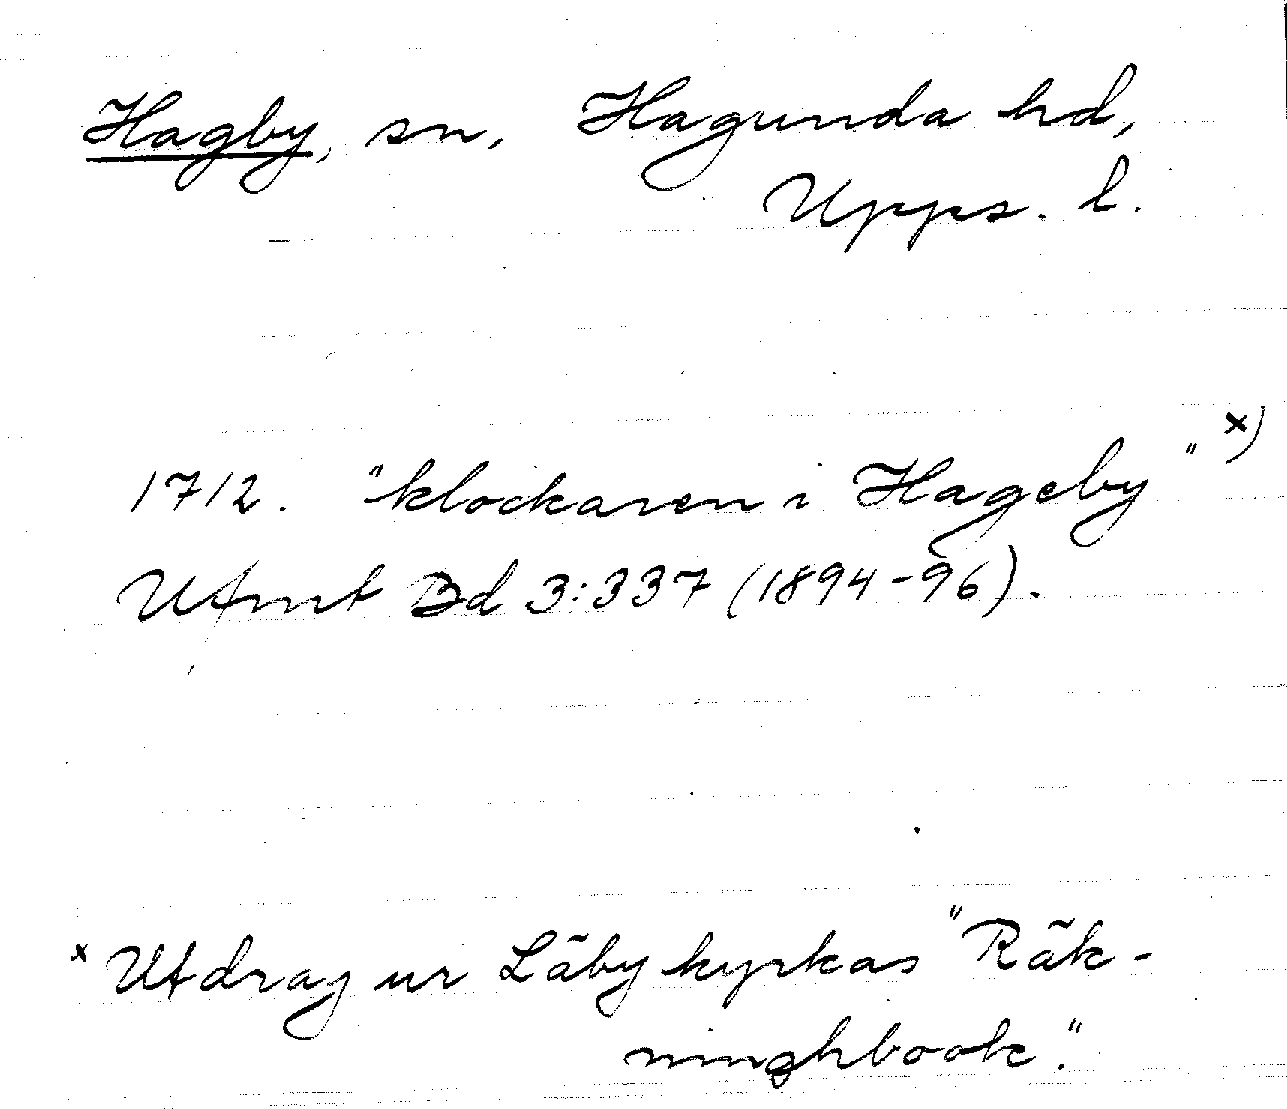 Hagby, sn, Hagunda hd,
Upps. l.
1712. "klockaren i Hageby" x)
Ufmt Bd 3:337 (1894-96).
x Utdrag ur Läby kyrkas "Räk-
ninghbook".